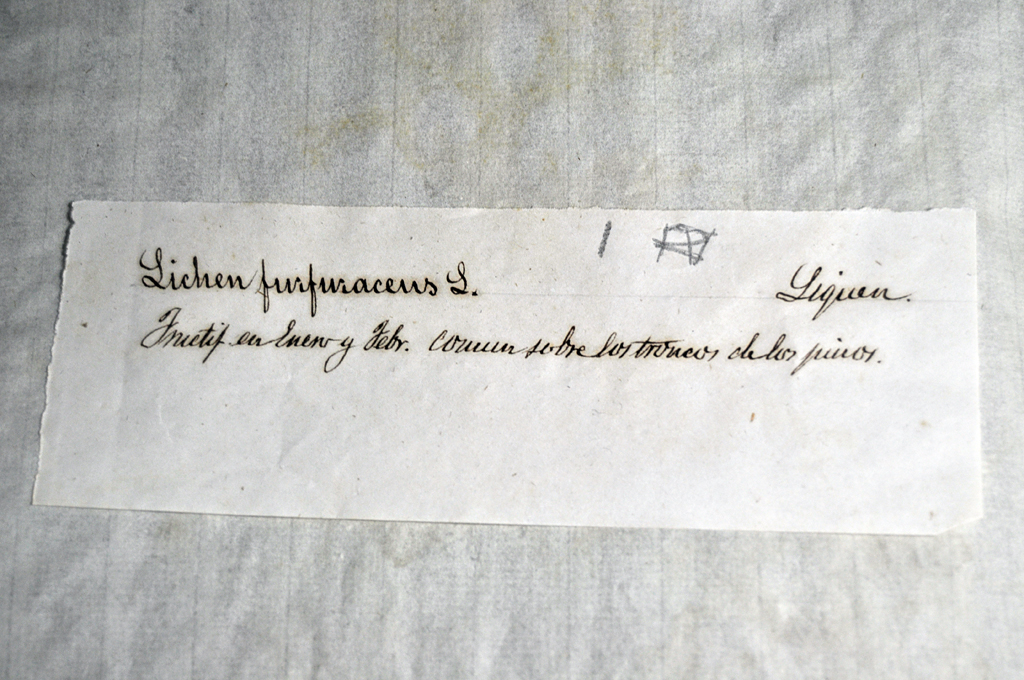 1
Lichen furfuraceus L. Liquen.
Fructif en Enero y Febr. comun sobre los troncos de los pinos.